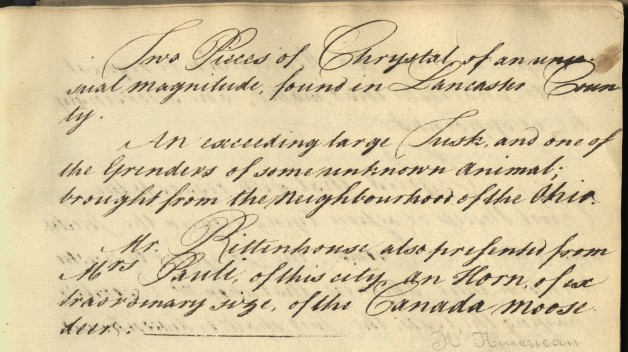 Two Pieces of Chrystal, of an unu-
sual magnitude, found in Lancaster Coun
ty.
An exceeding large Tusk, and one of
the Grenders of some unknown Animal;
brought from the Neighbourhood of the Ohio.
Mr. Rittenhouse, also presented from
Mrs Pauli, of this city, an Horn, of ex
traordinary size, of the Canada moose
deer.
American